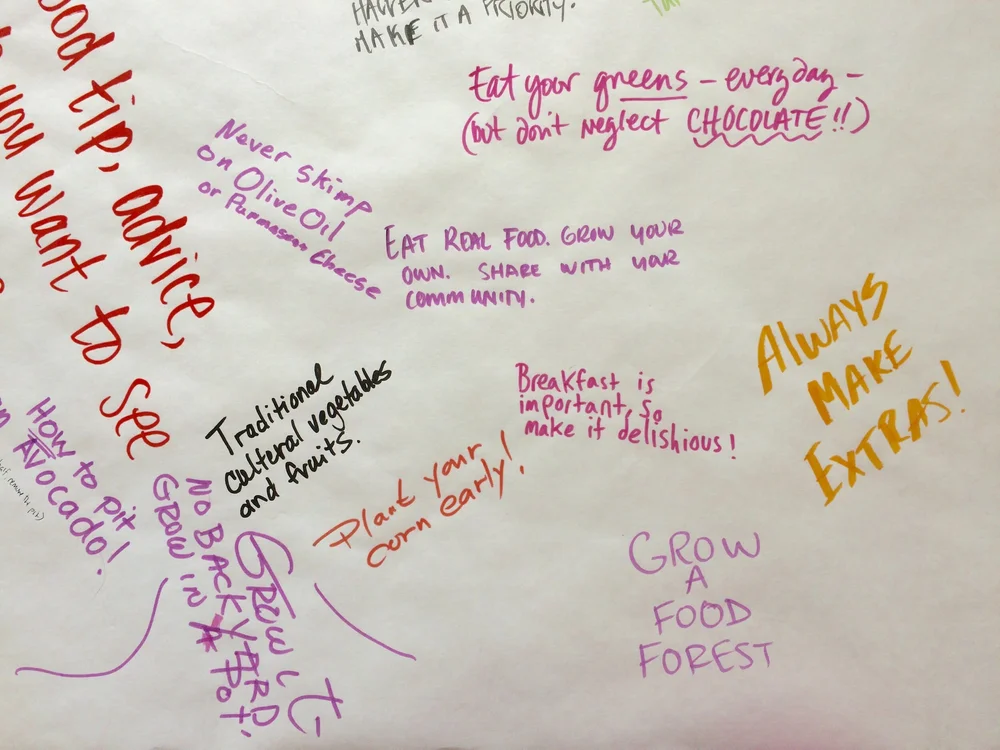 MAKE IT A PRIORITY.
Eat your greens – everyday –
(but don't neglect CHOCOLATE!!)
ood tip, advice,
you want to see
Never skimp
on Olive Oil
or Parmasean Cheese
EAT REAL FOOD. GROW YOUR
OWN. SHARE WITH YOUR
COMMUNITY.
ALWAYS
MAKE
EXTRAS!
Traditional
cultural vegetables
and fruits.
Breakfast is
important, so
make it delishious!
Plant your
corn early!
HOW to pit
an AVOCADO!
GROW IT
NO BACKYARD
GROW IN A POT.
GROW
A
FOOD
FOREST